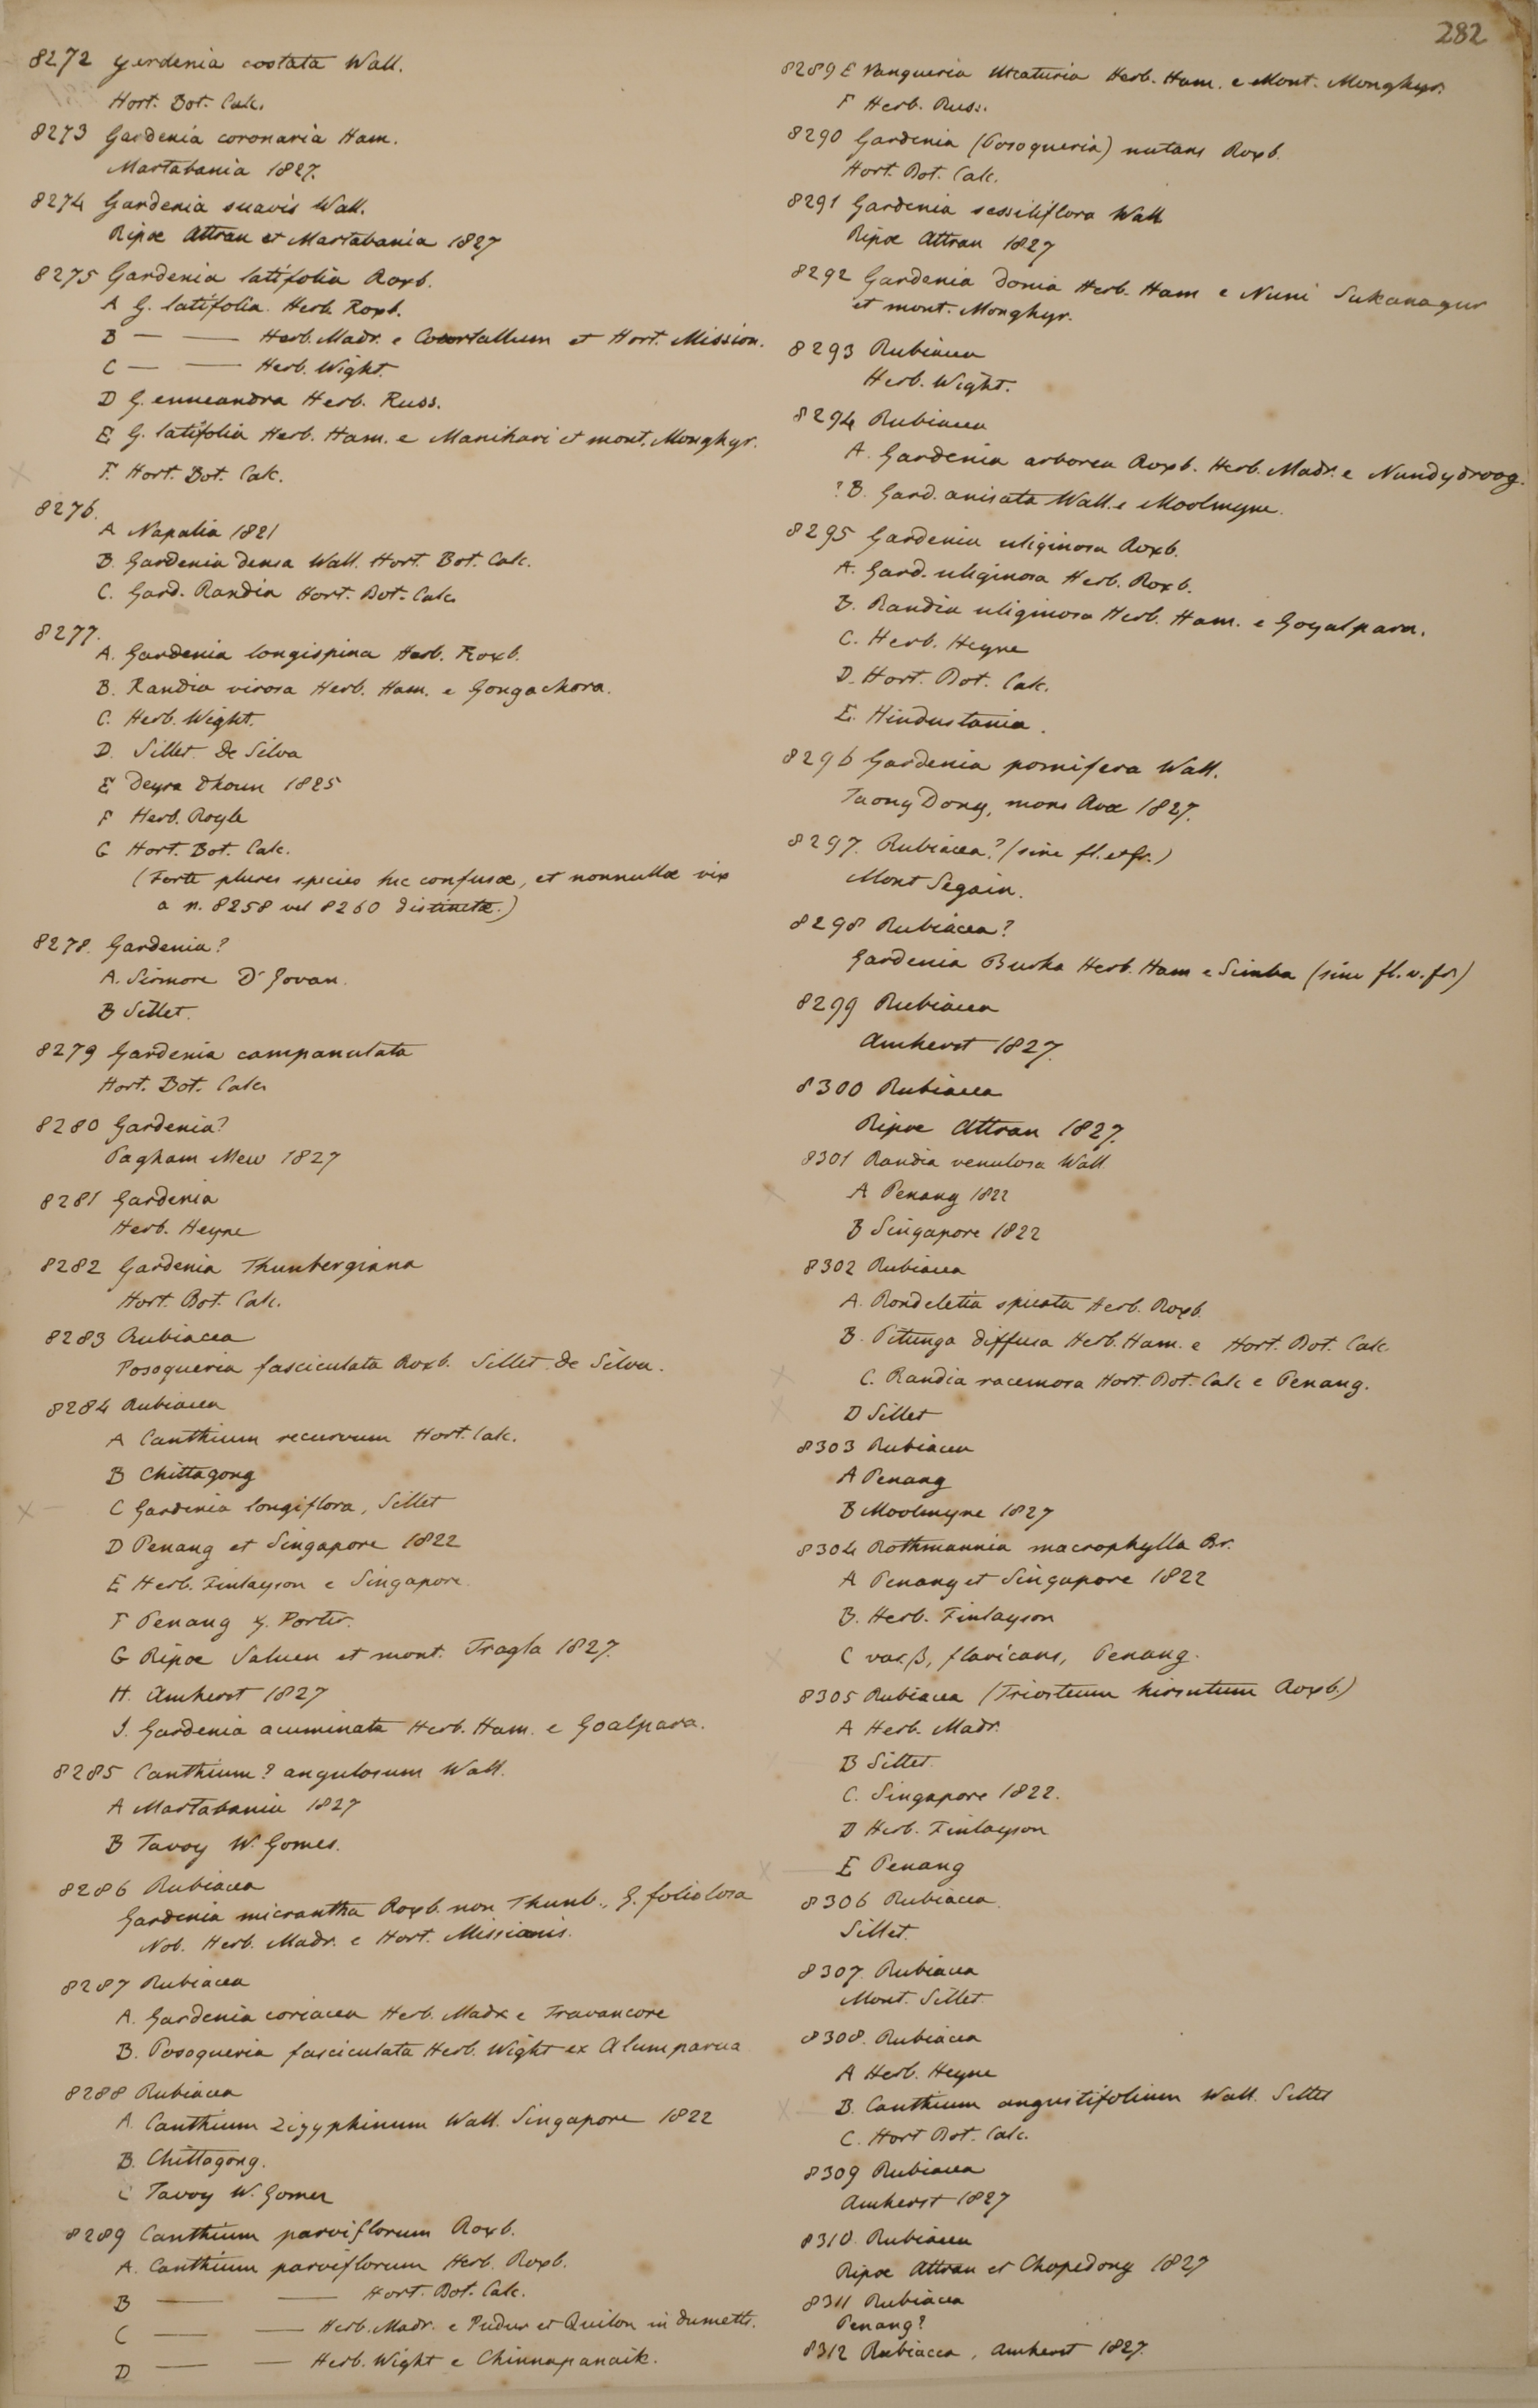 282
8272 Gardenia costata Wall.
Hort. Bot. Calc.
8273 Gardenia coronaria Ham.
Martabania 1827.
8274 Gardenia suavis Wall.
Ripae Attran et Martabania 1827
8275 Gardenia latifolia Roxb.
A G. latifolia. Herb. Roxb.
B — — Herb. Madr. e Courtallum et Hort. Mission.
C — — Herb. Wight.
D G. enneandra Herb. Russ.
E G. latifolia Herb. Ham. e Manihari et mont. Monghyr.
F. Hort. Bot. Calc.
8276.
A Napalia 1821
B. Gardenia densa Wall. Hort. Bot. Calc.
C. Gard. Randia Hort. Bot. Calc
8277.
A. Gardenia longispina Herb. Roxb.
B. Randia virosa Herb. Ham. e Gongachora.
C. Herb. Wight.
D. Sillet. De Silva
E Deyra Dhoun 1825
F Herb. Royle
G Hort. Bot. Calc.
(Forte plures species hic confusae, et nonnullae vix
a n. 8258 vel 8260 distinctae.)
8278. Gardenia?
A. Sirmore Dr Govan.
B Sillet.
8279 Gardenia campanulata
Hort. Bot. Calc
8280 Gardenia?
Pagham Mew 1827
8281 Gardenia
Herb. Heyne
8282 Gardenia Thunbergiana
Hort. Bot. Calc.
8283 Rubiacea
Posoqueria fasciculata Roxb. Sillet. De Silva.
8284 Rubiacea
A Canthium recurvum Hort. Calc.
B Chittagong
C Gardenia longiflora, Sillet
D Penang et Singapore 1822
E Herb. Finlayson e Singapore.
F Penang G. Porter.
G Ripae Saluen et mont. Tragla 1827.
H. Amherst 1827
I. Gardenia acuminata Herb. Ham. e Goalpara.
8285 Canthium? angulosum Wall.
A Martabania 1827
B Tavoy W. Gomes.
8286 Rubiacea
Gardenia micrantha Roxb. non Thunb., G. foliolosa
Nob. Herb. Madr. e Hort. Missionis.
8287 Rubiacea
A. Gardenia coriacea Herb. Madr e Travancore
B. Posoqueria fasciculata Herb. Wight ex Alumparva
8288 Rubiacea
A. Canthium Zizyphinum Wall. Singapore 1822
B. Chittagong.
C Tavoy W. Gomez
8289 Canthium parviflorum Roxb.
A. Canthium parviflorum Herb. Roxb.
B — — Hort. Bot. Calc.
C — — Herb. Madr. e Pudur et Quilon in dumetis.
D — — Herb. Wight e Chinnapanaik.
8289 E Vangueria Herb. Ham. e Mont. Monghyr.
F Herb. Russ.
8290 Gardenia (Posoqueria) nutans Roxb.
Hort. Bot. Calc.
8291 Gardenia sessiliflora Wall
Ripae Attran 1827
8292 Gardenia Donia Herb. Ham e Nuni Sukanagur
et mont. Monghyr.
8293 Rubiacea
Herb. Wight.
8294 Rubiacea
A. Gardenia arborea Roxb. Herb. Madr. e Nundydroog.
?B. Gard. anisata Wall. e Moolmyne.
8295 Gardenia uliginosa Roxb.
A. Gard. uliginosa Herb. Roxb.
B. Randia uliginosa Herb. Ham. e Goyalpara.
C. Herb. Heyne
D. Hort. Bot. Calc.
E. Hindustania.
8296 Gardenia pomifera Wall.
Taong Dong, mons Avae 1827.
8297. Rubiacea? (sine fl. et fr.)
Mont Segain.
8298 Rubiacea?
Gardenia Burha Herb. Ham e Simba (sine fl. v. fr)
8299 Rubiacea
Amherst 1827.
8300 Rubiacea
Ripae Attran 1827.
8301 Randia venulosa Wall.
A Penang 1822
B Singapore 1822
8302 Rubiacea
A. Rondeletia spicata Herb. Roxb.
B. Pitunga diffusa Herb. Ham. e Hort. Bot. Calc
C. Randia racemosa Hort. Bot. Calc e Penang.
D Sillet
8303 Rubiacea
A Penang
B Moolmyne 1827
8304 Rothmannia macrophylla Br.
A Penang et Singapore 1822
B. Herb. Finlayson
C var. β, flavicans, Penang.
8305 Rubiacea (Triosteum hirsutum Roxb.)
A Herb. Madr.
B Sillet.
C. Singapore 1822.
D Herb. Finlayson
E Penang
8306 Rubiacea.
Sillet.
8307. Rubiacea
Mont. Sillet.
8308. Rubiacea
A Herb. Heyne
B. Canthium angustifolium Wall. Sillet
C. Hort Bot. Calc.
8309 Rubiacea
Amherst 1827
8310. Rubiacea
Ripae Attran et Chopedong 1827
8311 Rubiacea
Penang?
8312 Rubiacea, Amherst 1827.